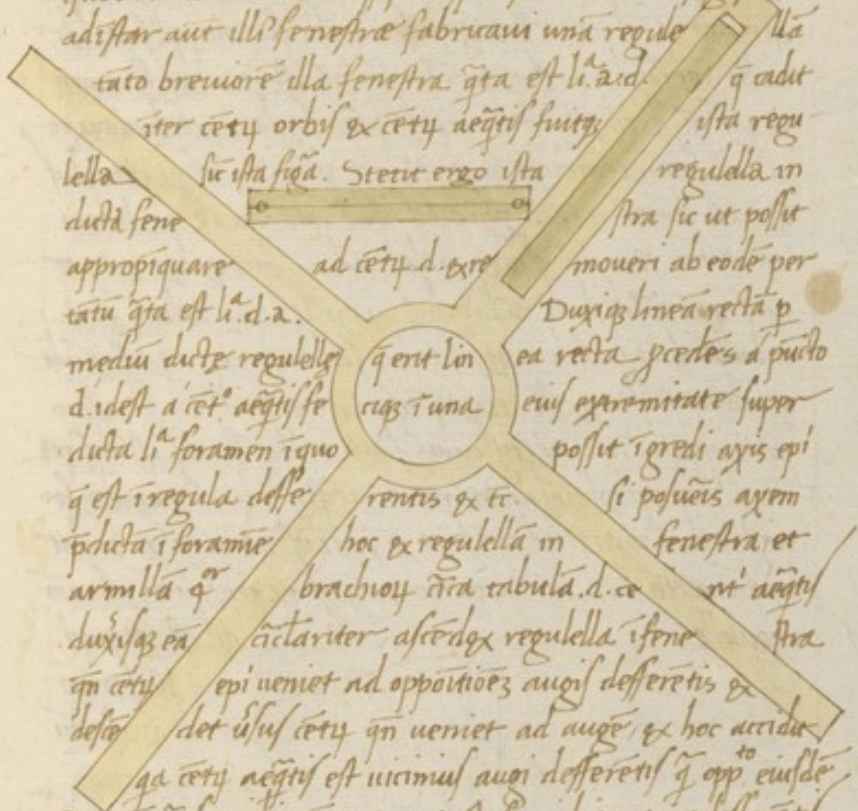 adistar aut illi' fenestræ fabricaui unā regule llā
tāto breuiorē illa fenestra q̄ta est li.ª a.d. q̄ cadit
īter cētꝝ orbis ⁊ cētꝝ aeq̄tis fuitqꝫ ista regu
lella sic ista figā. Stetit ergo ista regulella in
dictā fene stra sic ut possit
appropīquare ad cētꝝ .d. ⁊ re moueri ab eodē per
tātū q̄ta est li.ª d.a. Duxiqꝫ lineā rectā p̄
mediū dicte regulelle q̄ erit lin ea recta ꝓcedēs a pūcto
d. idest a cēt.º aeq̄tis fe ciqꝫ ī una eius extremitate super
dicta li.ª foramen ī quo possit īgredi axis epi
q̄ est ī regula deffe rentis ⁊ tc̄. si posueīs axem
p̄dictā ī foramīe hoc ⁊ regulellā in fenestra et
armillā q̄ᵒʳ brachioꝝ cīca tabulā .d. ce nt' aeq̄tis
duxisqꝫ eā cīclariter ascēdꝫ regulella ī fene stra
qn̄ cētꝝ epi ueniet ad oppōitiōeꝫ augis defferētis ⁊
descē det ūsus cētꝝ qn̄ ueniet ad augē, ⁊ hoc accidit
qa cētꝝ aeq̄tis est uicinius augi defferētis q̄ opp.ᵗᵒ eiusdē